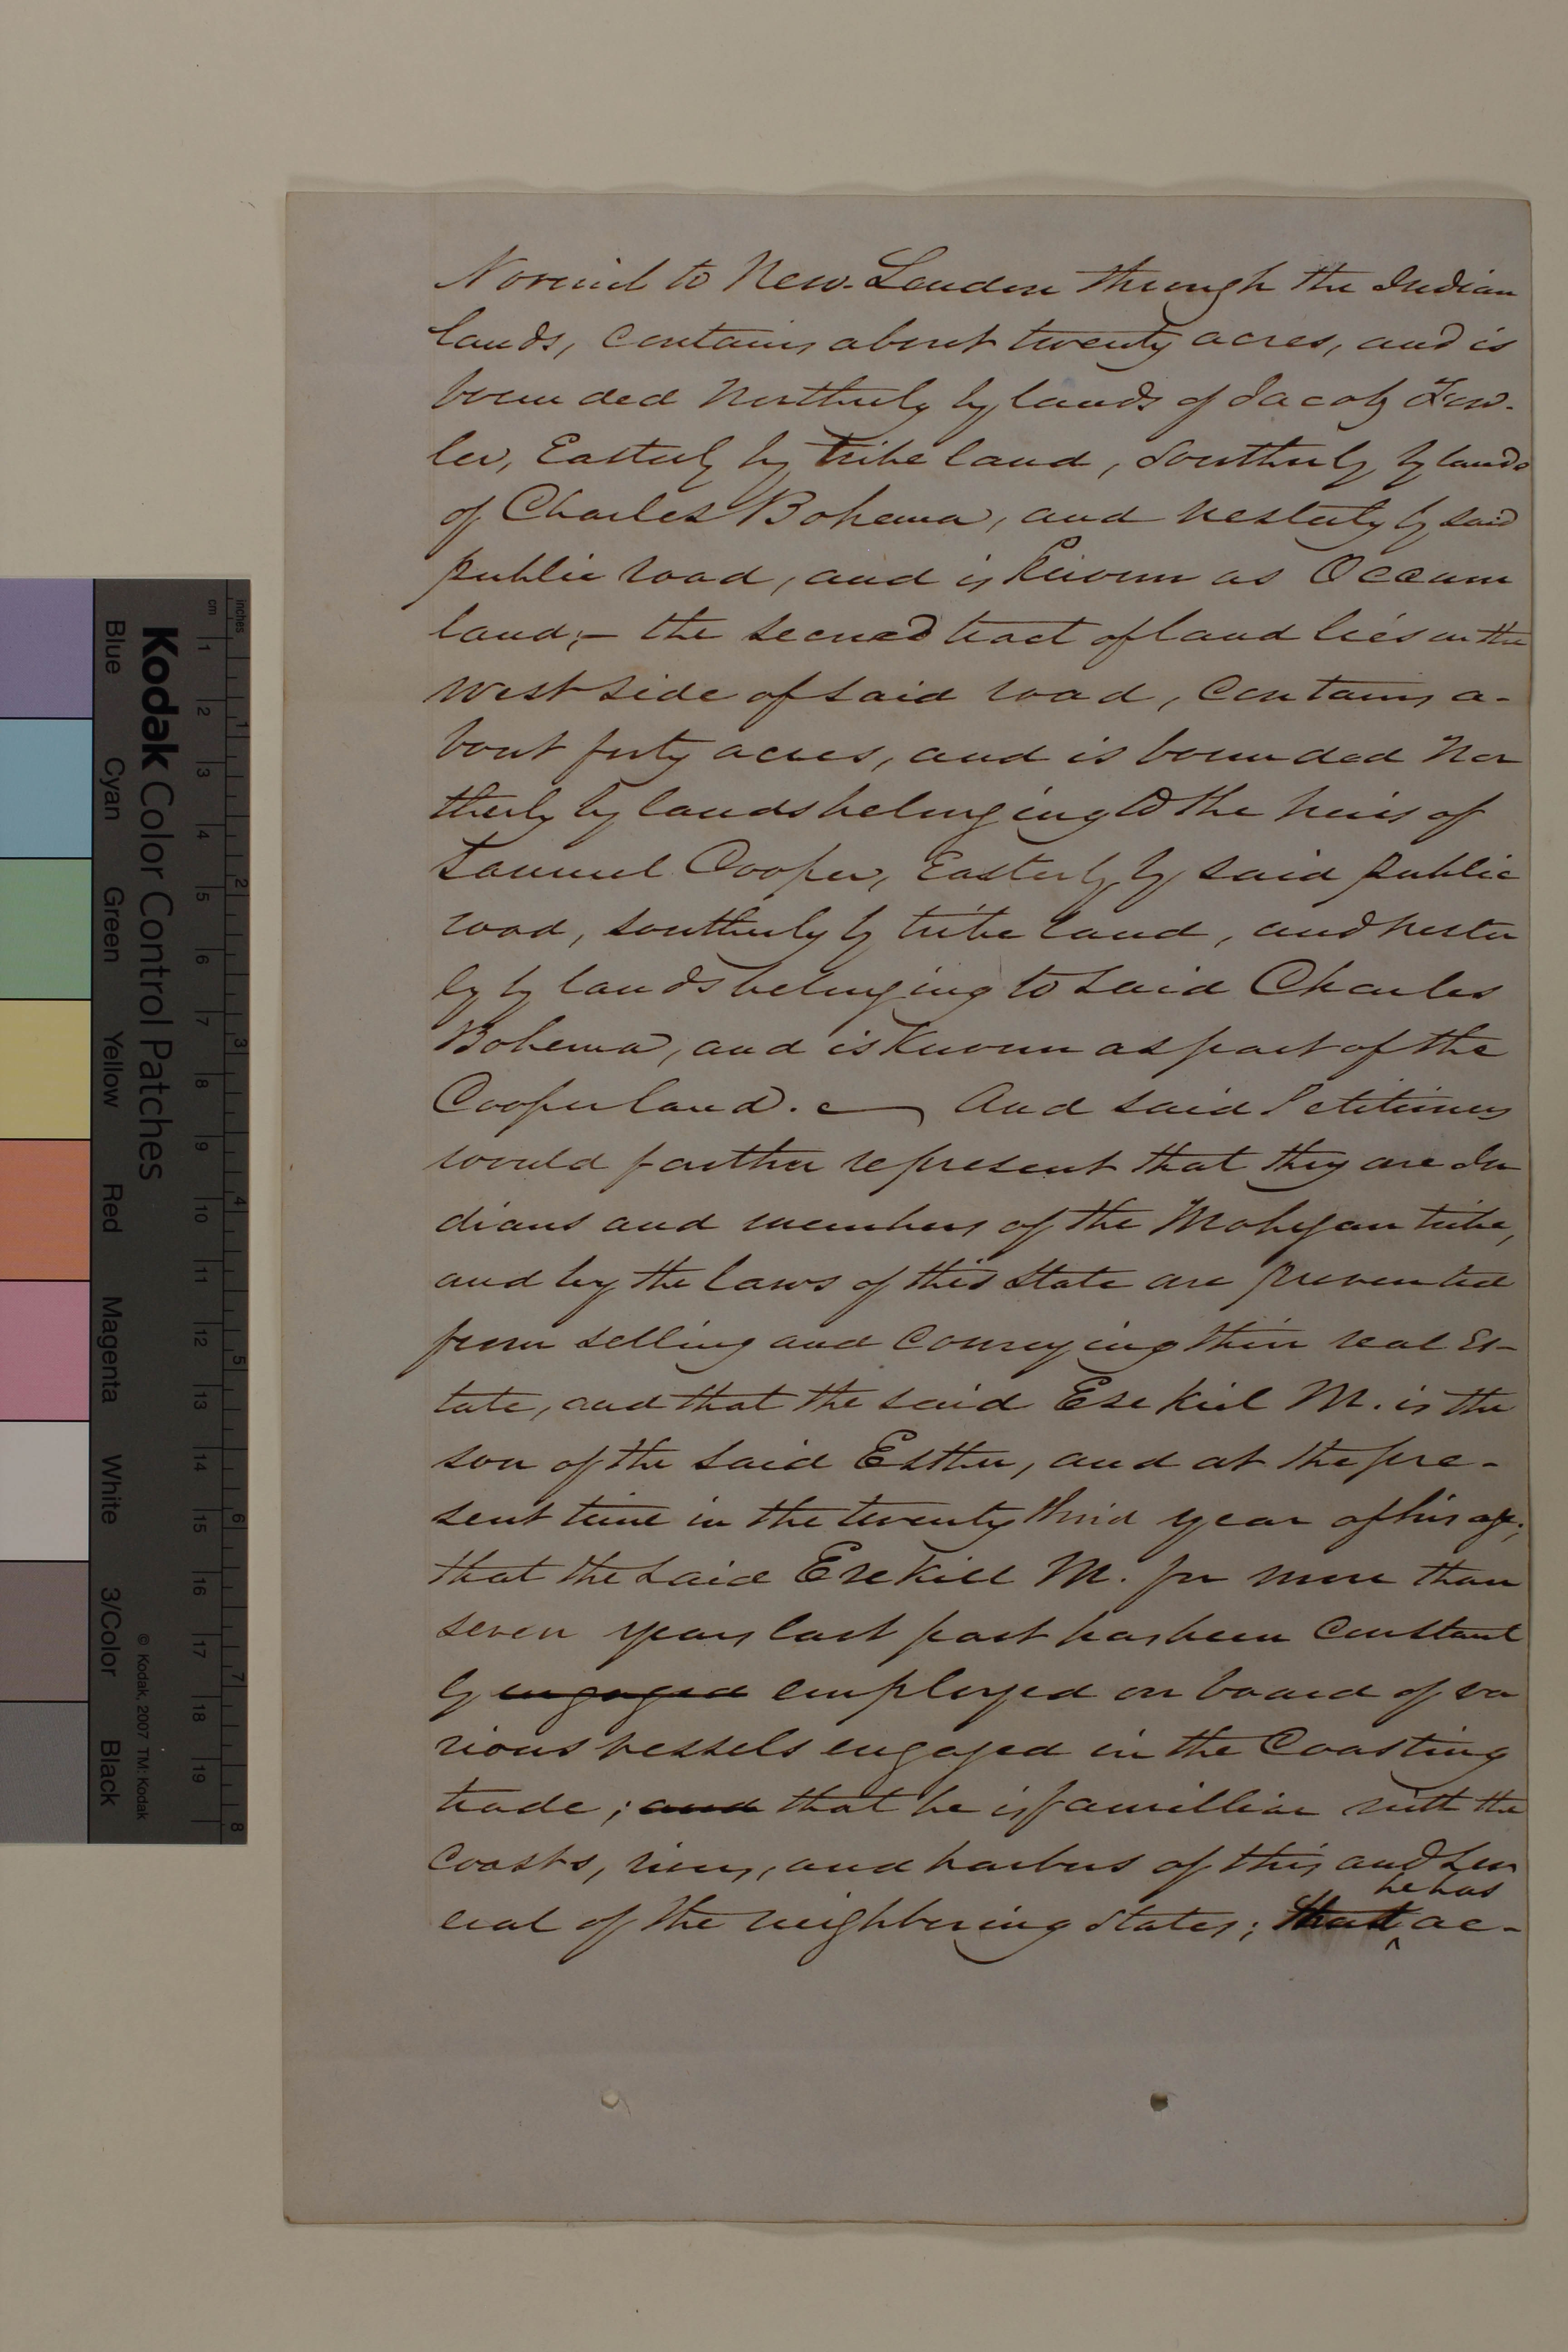 Norwich to New-London through the Indian
lands, contains about twenty acres, and is
bounded Northerly by lands of Jacob Fow-
ler, Easterly by tribe land, Southerly by lands
of Charles Bohema, and westerly by said
public road, and is known as Occum
land;– the second tract of land lies on the
west side of said road, contains a-
bout forty acres, and is bounded Nor
therly by lands belonging to the heirs of
Samuel Cooper, Easterly by said public
road, southerly by tribe land, and wester
ly by lands belonging to said Charles
Bohema, and is known as part of the
Cooper land. — And said Petitioners
would further represent that they are In
dians and members of the Mohegan tribe,
and by the laws of this State are prevented
from selling and conveying their real es-
tate, and that the said Ezekiel M. is the
son of the said Esther, and at the pre-
sent time in the twenty third year of his age;
that the said Ezekiel M. for more than
seven years last past has been constant
ly engaged employed on board of va
rious vessels engaged in the Coasting
trade; and that he is familliar with the
coasts, rivers, and harbors of this and sev
he has
eral of the neighboring States; that ac-
inches
cm
1 2 3 4 5 6 7 8 9 10 11 12 13 14 15 16 17 18 19
1 2 3 4 5 6 7 8
Kodak Color Control Patches
© Kodak, 2007 TM: Kodak
Blue Cyan Green Yellow Red Magenta White 3/Color Black